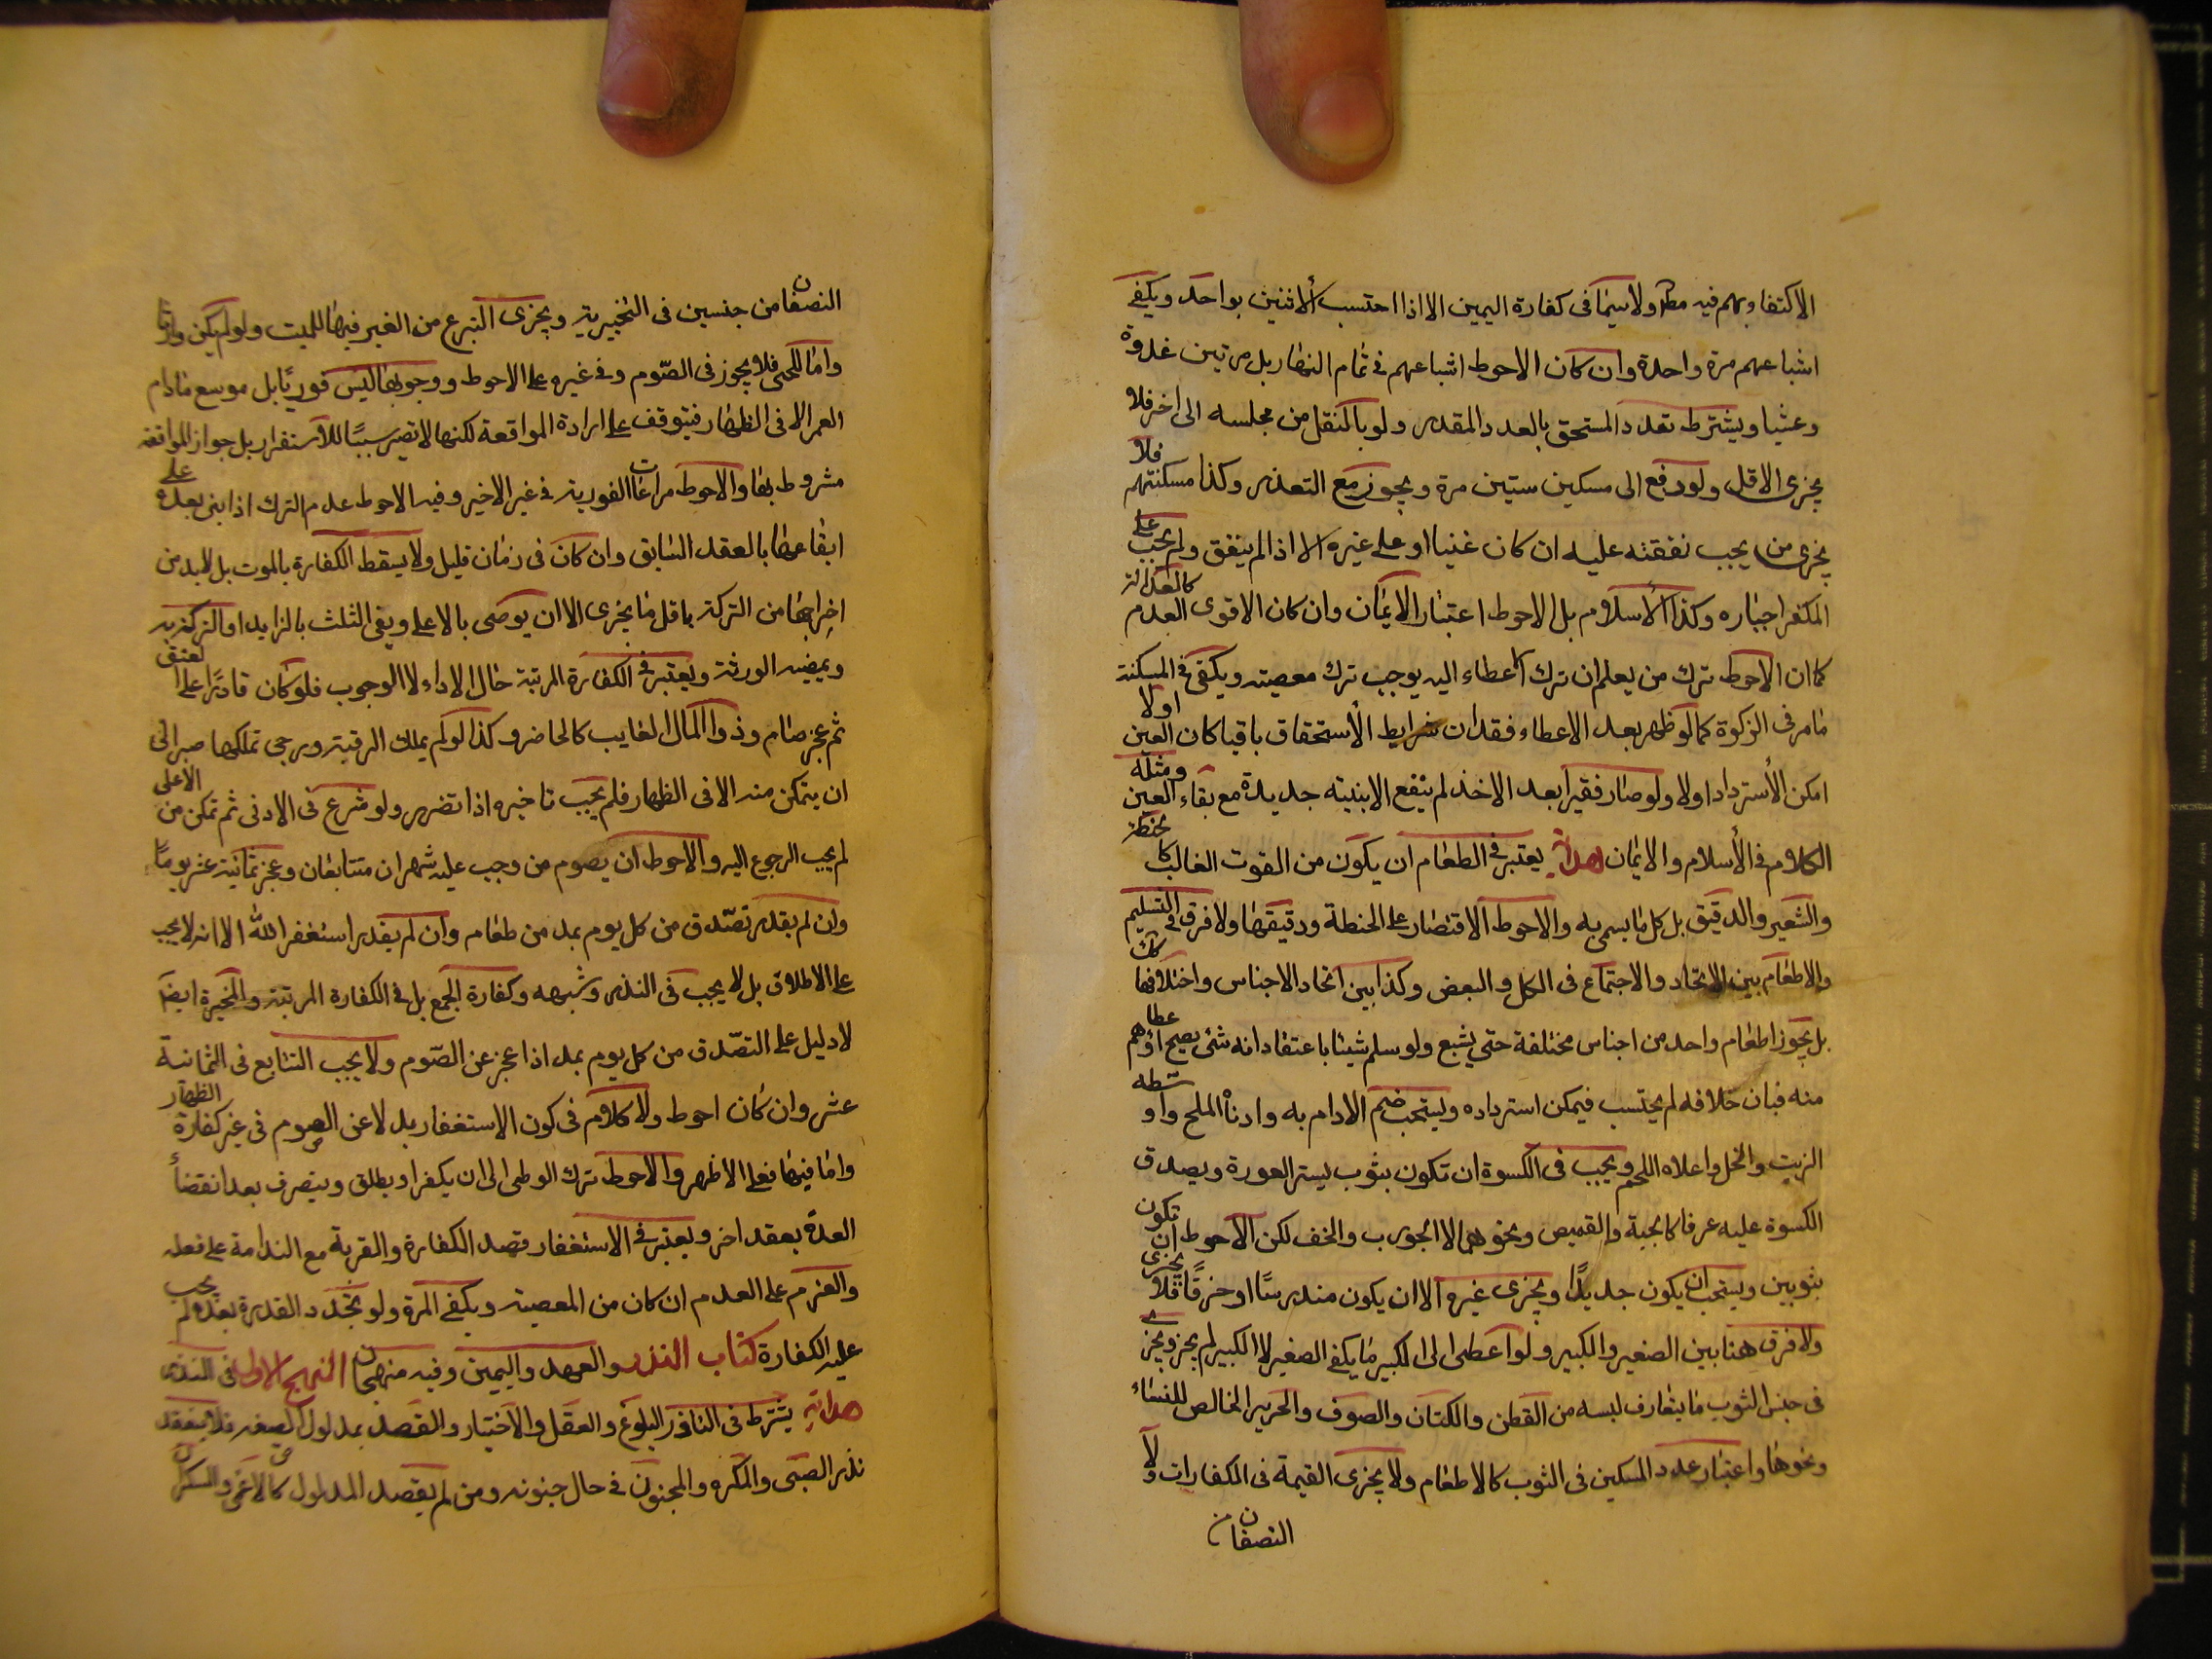 الاكتفاء بهم فيه مط ولاسيما فى كفارة اليمين الا اذا احتسب الاثنين بواحد ويكفى
اشباعهم مرة واحدة وان كان الاحوط اشباعهم فى تمام النهار بل مرتين غدوة
وعشيا ويشترط تعدد المستحق بالعدد المقدر ولو بالتنقل من مجلسه الى اخر فلا
يجزى الاقل ولو دفع الى مسكين ستين مرة ويجوز مع التعذر وكذا مسكنتهم فلا
يجزى من يجب نفقته عليه ان كان غنيا او على غيره الا اذا لم ينفق ولم يجب على
المكفر اجباره وكذا الأسلام بل الاحوط اعتبار الايمان وان كان الاقوى العدم كالعدالة
كما ان الاحوط ترك من يعلم ان ترك اعطاء اليه يوجب ترك معصيته ويكفى فى المسكنة
مامر فى الزكوة كما لو ظهر بعد الاعطاء فقدان شرايط الأستحقاق باقيا كان العين اولا
امكن الأسترداد اولا ولو صار فقيرا بعد الاخذ لم ينفع الابنية جديدة مع بقاء العين ومثله
الكلام فى الأسلام والايمان هداية يعتبر فى الطعام ان يكون من القوت الغالب كالحنطة
والشعير والدقيق بل كل ما يسمى به والاحوط الاقتصار على الحنطة ودقيقها ولا فرق فى التسليم
والاطعام بين الاتحاد والاجتماع فى الكل والبعض وكذا بين اتحاد الاجناس واختلافها كك
بل يجوز اطعام واحد من اجناس مختلفة حتى يشبع ولو سلم شيئا باعتقاد انه شئ يصح اعطاؤهم
منه فبان خلافه لم يحتسب فيمكن استرداده ويستحب ضم الادام به وادناه الملح واوسطه
الزيت والخل واعلاه اللحم ويجب فى الكسوة ان تكون بثوب ليستر العورة ويصدق
الكسوة عليه عرفا كالجبة والقميص ونحوهما لا الجورب والخف لكن الاحوط ان تكون
بثوبين ويستحب ان يكون جديدًا ويجزى غيره الا ان يكون مندرسًا او خرقًا فلا يجزى
ولا فرق هنا بين الصغير والكبير ولو اعطى الى الكبير ما يكفى الصغير لا الكبير لم يجز ويجزى
فى جنس الثوب ما يتعارف لبسه من القطن والكتان والصوف والحرير الخالص للنساء
ونحوها واعتبار عدد المسكين فى الثوب كالاطعام ولا يجزى القيمة فى الكفارات ولا
النصفان
النصفان من جنسين فى التخييرية ويجزى التبرع من الغير فيها للميت ولو لم يكن وارثا
واما للحى فلا يجوز فى الصّوم وفى غيره على الاحوط ووجوبها ليس فوريًا بل موسع مادام
العمر الا فى الظهار فيتوقف على ارادة المواقعة لكنها لا تصير سببًا للأستقرار بل جواز المواقعة
مشروط بها والاحوط مراعات الفورية فى غير الاخير وفيه الاحوط عدم الترك اذا بنى بعده على
ابقاعها بالعقد السابق وان كان فى زمان قليل ولا يسقط الكفارة بالموت بل لابد من
اخراجها من التركة باقل ما يجزى الا ان يوصى بالاعلى ويفى الثلث بالزايد او التركة به
ويمضيه الورثة ويعتبر فى الكفارة المرتبة حال الاداء لا الوجوب فلو كان قادرًا على العتق
ثم عجز صام وذو المال الغايب كالحاضر وكذا لو لم يملك الرقبة ويرجى تملكها صبر الى
ان يتمكن منه الا فى الظهار فلم يجب تاخيره اذا تضرر ولو شرع فى الادنى ثم تمكن من الاعلى
لم يجب الرجوع اليه والاحوط ان يصوم من وجب عليه شهران متتابعان وعجز ثمانية عشر يومًا
وان لم يقدر تصّدق من كل يوم بمد من طعام وان لم يقدر استغفر الله الا انه لا يجب
على الاطلاق بل لا يجب فى النذر وشبهه وكفارة الجمع بل فى الكفارة المرتبة والمخيرة ايضا
لا دليل على التصّدق من كل يوم بمد اذا عجز عن الصّوم ولا يجب التتابع فى الثمانية
عشر وان كان احوط ولا كلام فى كون الاستغفار بدلا عن الصوم فى غير كفارة الظهار
واما فيها فعلى الاظهر والاحوط ترك الوطى الى ان يكفر او يطلق ويتصرف بعد انقضأ
العدة بعقد اخر ويعتبر فى الاستغفار قصد الكفارة والقربة مع الندامة على فعله
والعزم على العدم ان كان من المعصية ويكفى المرة ولو تجدد القدرة بعده لم يجب
عليه الكفارة كتاب النذر والعهد واليمين وفيه منهجان المنهج الاول فى النذر
هداية يشترط فى الناذر البلوغ والعقل والاختيار والقصد بمدلول الصيغه فلا ينعقد
نذر الصبّى والمكره والمجنون فى حال جنونه ومن لم يقصد المدلول كالاغمى والسكران